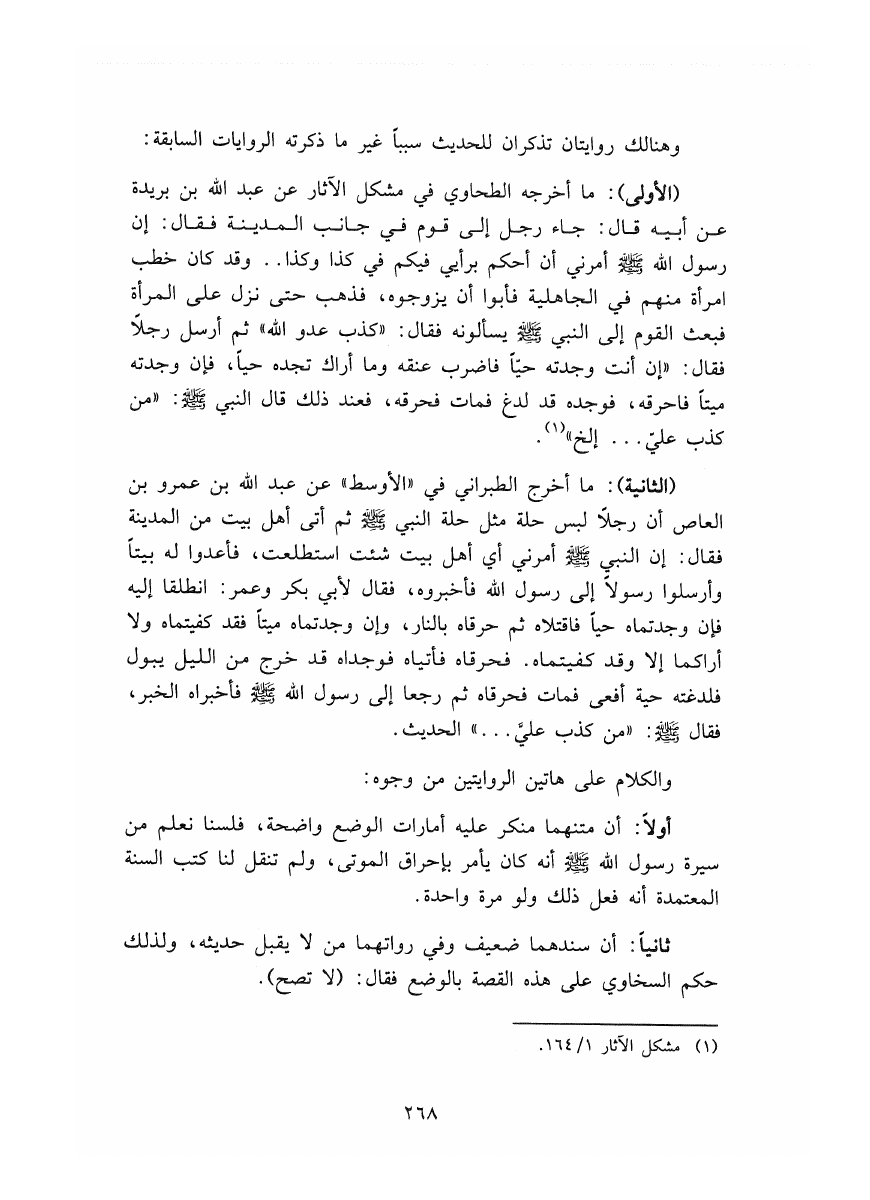 وهنالك روايتان تذكران للحديث سبباً غير ما ذكرته الروايات السابقة:
(الأولى): ما أخرجه الطحاوي في مشكل الآثار عن عبد الله بن بريدة
عن أبيه قال: جاء رجل إلى قوم في جانب المدينة فقال: إن
رسول الله ﷺ أمرني أن أحكم برأيي فيكم في كذا وكذا.. وقد كان خطب
امرأة منهم في الجاهلية فأبوا أن يزوجوه، فذهب حتى نزل على المرأة
فبعث القوم إلى النبي ﷺ يسألونه فقال: «كذب عدو الله» ثم أرسل رجلاً
فقال: «إن أنت وجدته حيّاً فاضرب عنقه وما أراك تجده حياً، فإن وجدته
ميتاً فاحرقه، فوجده قد لدغ فمات فحرقه، فعند ذلك قال النبي ﷺ: «من
كذب عليّ... إلخ»(١).
(الثانية): ما أخرج الطبراني في «الأوسط» عن عبد الله بن عمرو بن
العاص أن رجلاً لبس حلة مثل حلة النبي ﷺ ثم أتى أهل بيت من المدينة
فقال: إن النبي ﷺ أمرني أي أهل بيت شئت استطلعت، فأعدوا له بيتاً
وأرسلوا رسولاً إلى رسول الله فأخبروه، فقال لأبي بكر وعمر: انطلقا إليه
فإن وجدتماه حياً فاقتلاه ثم حرقاه بالنار، وإن وجدتماه ميتاً فقد كفيتماه ولا
أراكما إلا وقد كفيتماه. فحرقاه فأتياه فوجداه قد خرج من الليل يبول
فلدغته حية أفعى فمات فحرقاه ثم رجعا إلى رسول الله ﷺ فأخبراه الخبر،
فقال ﷺ: «من كذب عليَّ...» الحديث.
والكلام على هاتين الروايتين من وجوه:
أولاً: أن متنهما منكر عليه أمارات الوضع واضحة، فلسنا نعلم من
سيرة رسول الله ﷺ أنه كان يأمر بإحراق الموتى، ولم تنقل لنا كتب السنة
المعتمدة أنه فعل ذلك ولو مرة واحدة.
ثانياً: أن سندهما ضعيف وفي رواتهما من لا يقبل حديثه، ولذلك
حكم السخاوي على هذه القصة بالوضع فقال: (لا تصح).
(١) مشكل الآثار ١/ ١٦٤.
٢٦٨